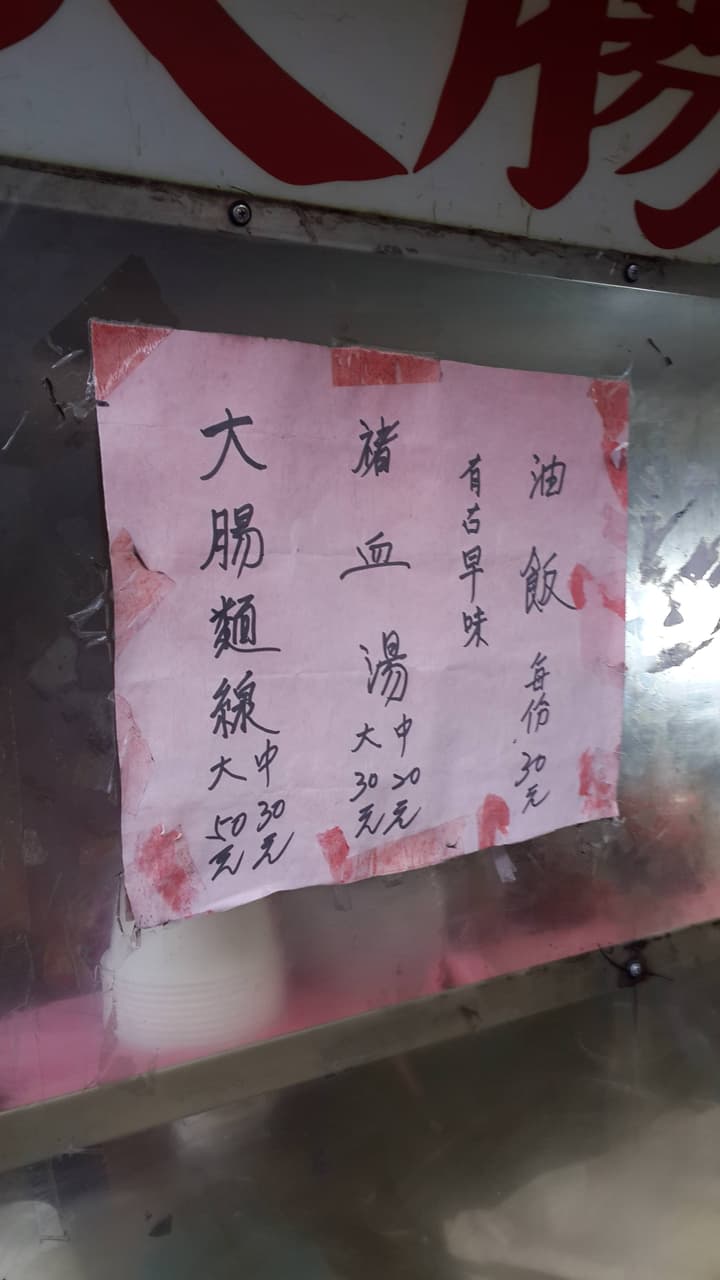 油飯 每份30元
有古早味
褚血湯
中20元
大30元
大腸麵線
中30元
大50元